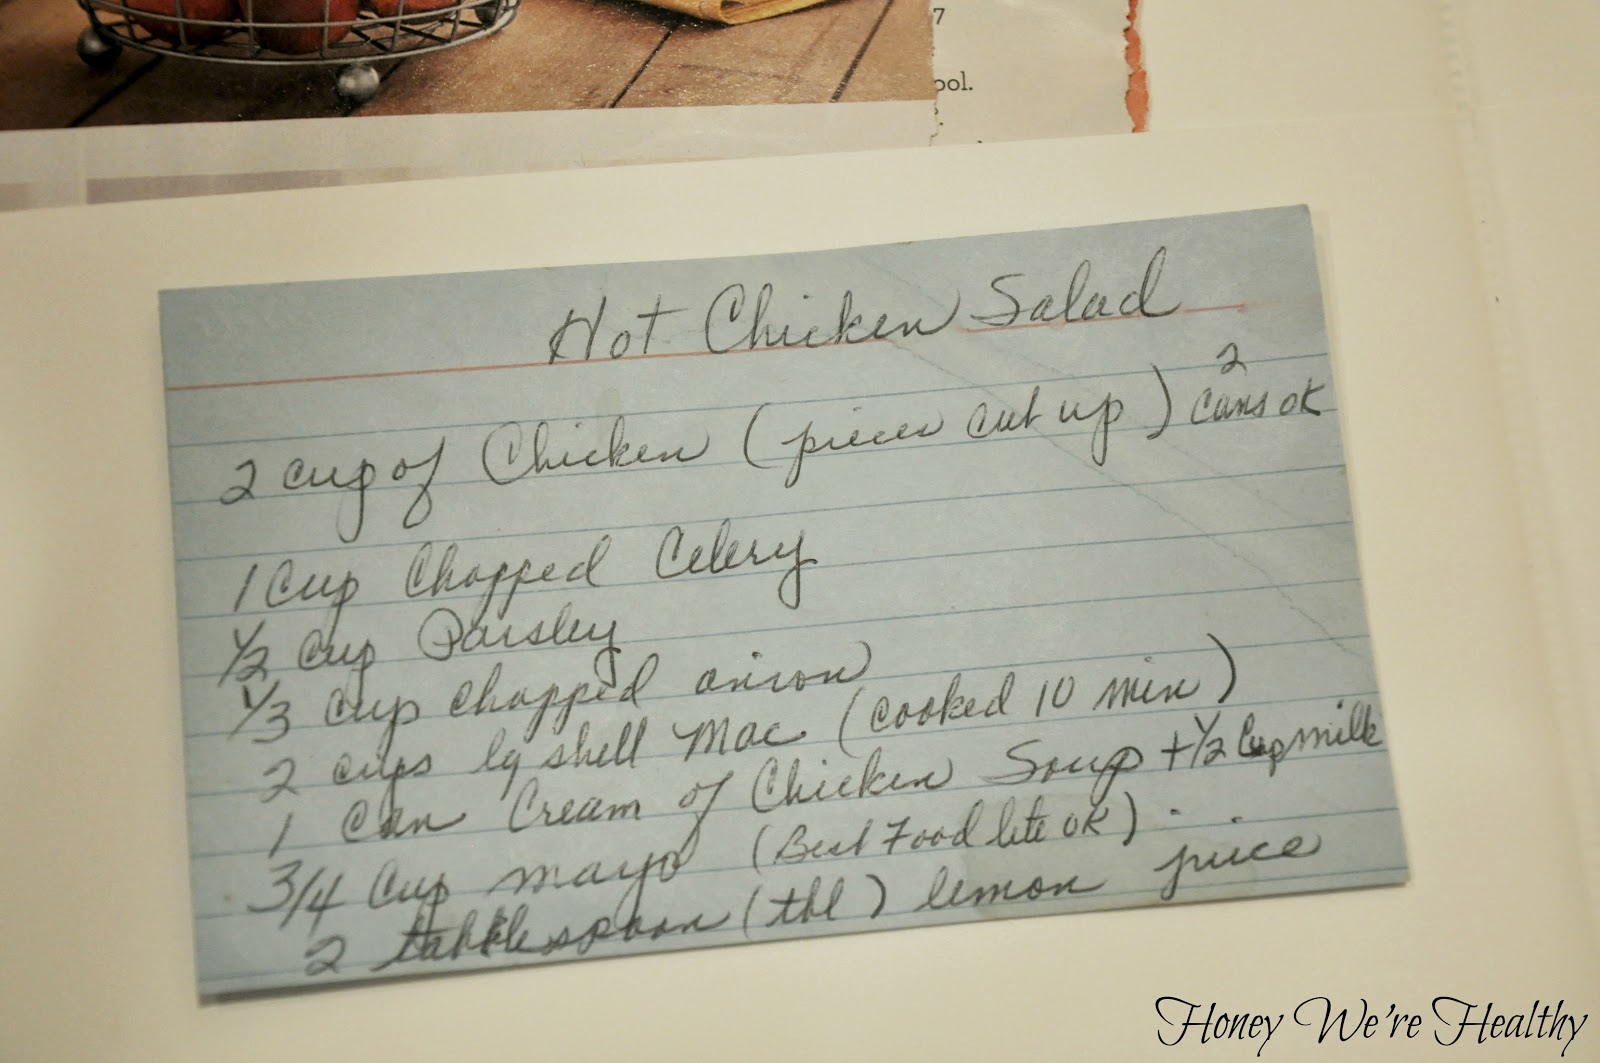 7
ool.
Hot Chicken Salad
2 cup of Chicken (pieces cut up) 2 cans ok
1 Cup Chopped Celery
1/2 cup Parsley
1/3 cup chopped onion
2 cups lg shell Mac (cooked 10 min)
1 Can Cream of Chicken Soup + 1/2 Cup milk
3/4 Cup mayo (Best Food lite OK)
2 tablespoon (tbl) lemon juice
Honey We're Healthy